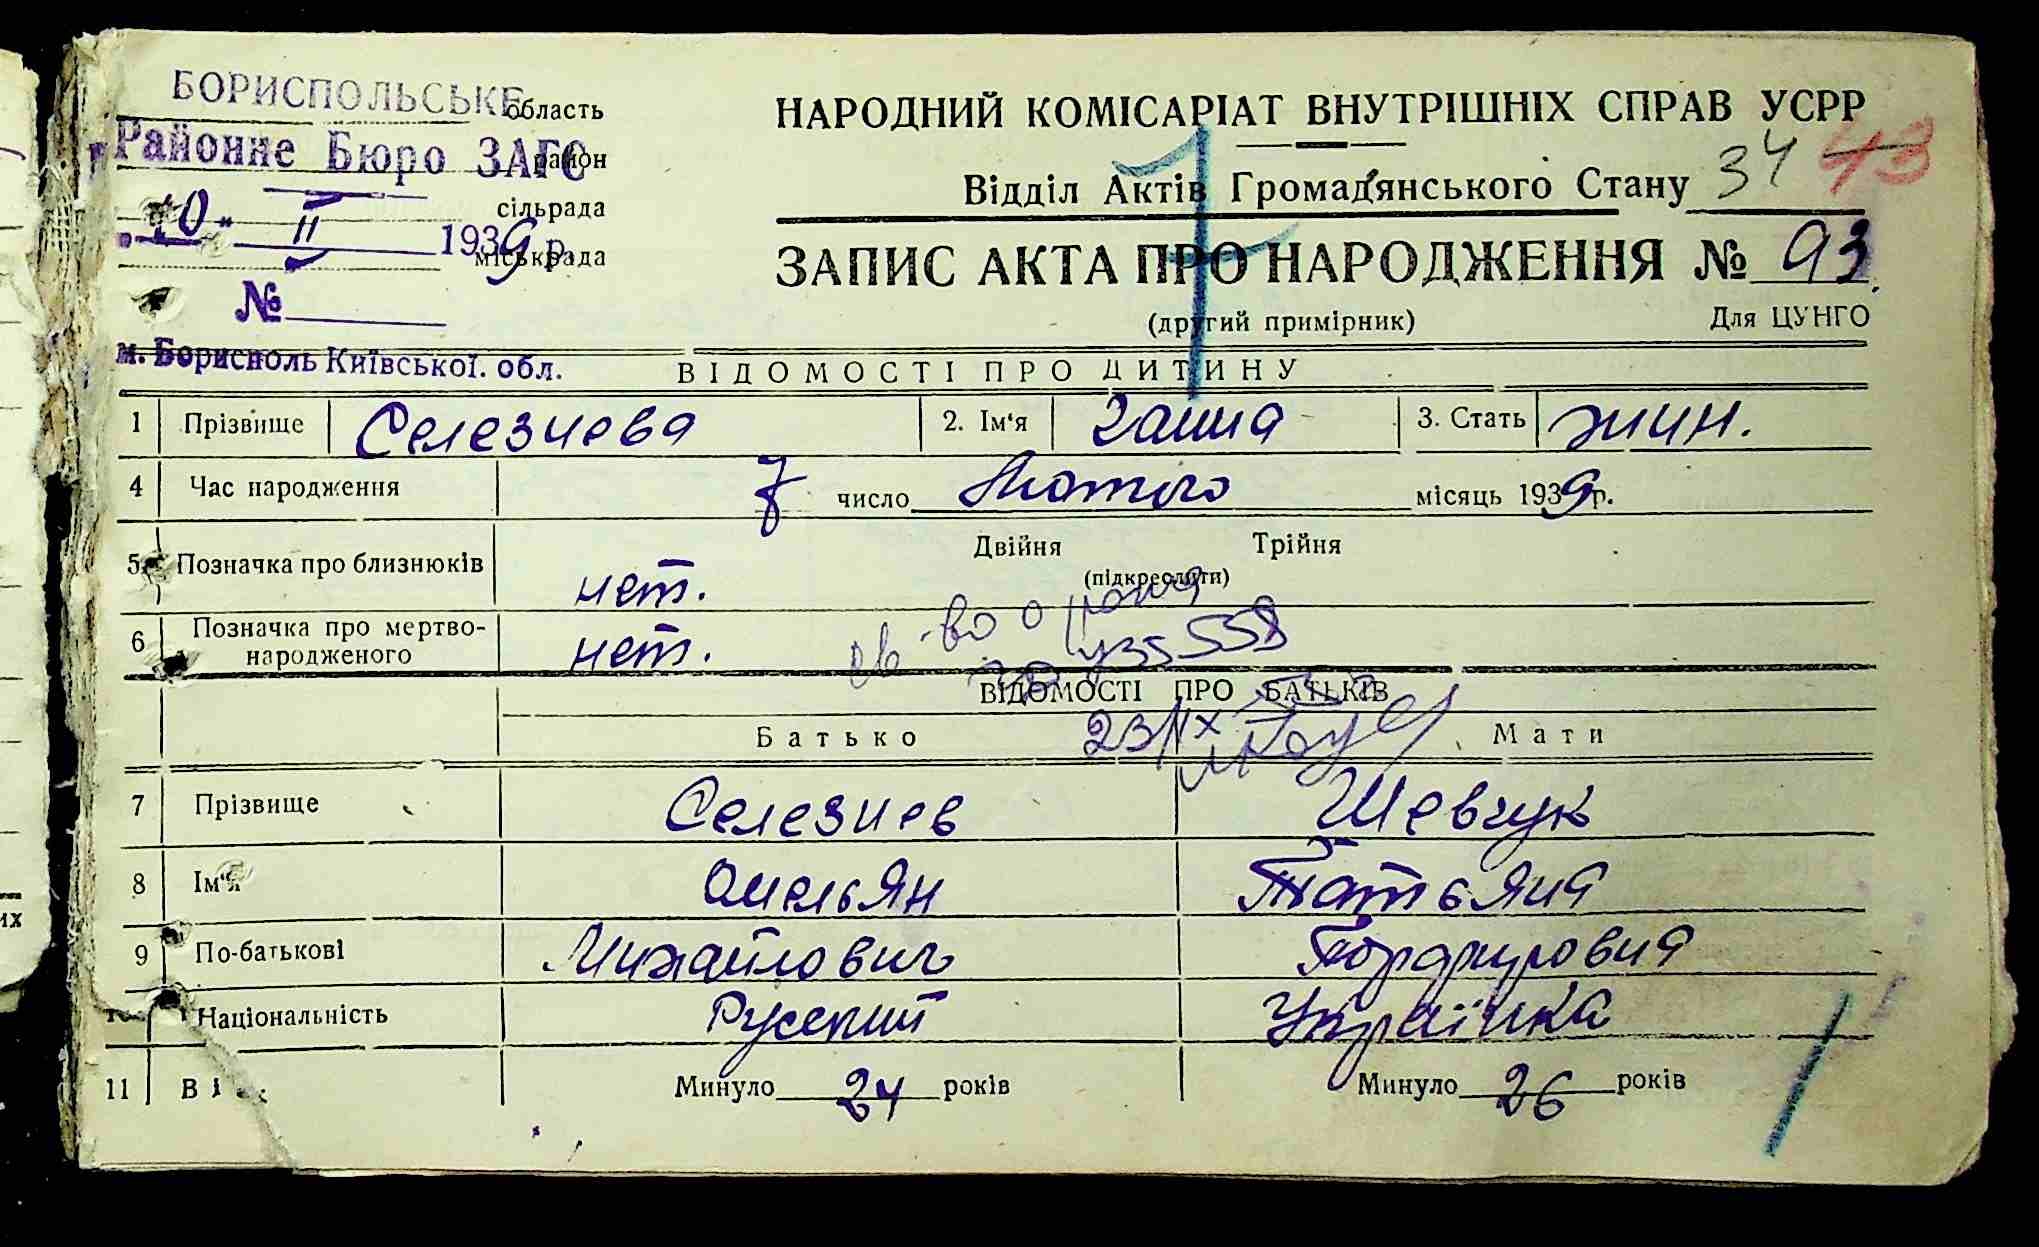 БОРИСПОЛЬСЬКЕ область
Районне Бюро ЗАГС район
сільрада
„10“ II 1939 р. міськрада
№
м. Бориспoль Київської. обл.
НАРОДНИЙ КОМІСАРІАТ ВНУТРІШНІХ СПРАВ УСРР
Відділ Актів Громад'янського Стану 34 43
ЗАПИС АКТА ПРО НАРОДЖЕННЯ № 93
(другий примірник) Для ЦУНГО
ВІДОМОСТІ ПРО ДИТИНУ
1 Прізвище Селезнева 2. Ім'я Ганна 3. Стать жин.
4 Час народження 7 число Лютого місяць 1939 р.
5 Позначка про близнюків нет. Двійня Трійня
(підкреслити)
6 Позначка про мертво-
народженого нет.
св-во о
558
ВІДОМОСТІ ПРО БАТЬКІВ
23/IX
Батько Мати
7 Прізвище Селезнев Шевчук
8 Ім'я Омельян Татьяна
9 По-батькові Михайлович
10 Національність Русский Українка
11 Вік Минуло 24 років Минуло 26 років